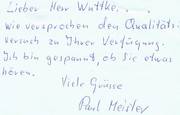 Lieber Herr Wuttke...
wie versprochen den Qualitäts-
versuch zu Ihrer Verfügung.
Ich bin gespannt, ob Sie etwas
hören.
Viele Grüsse
Paul Meisler